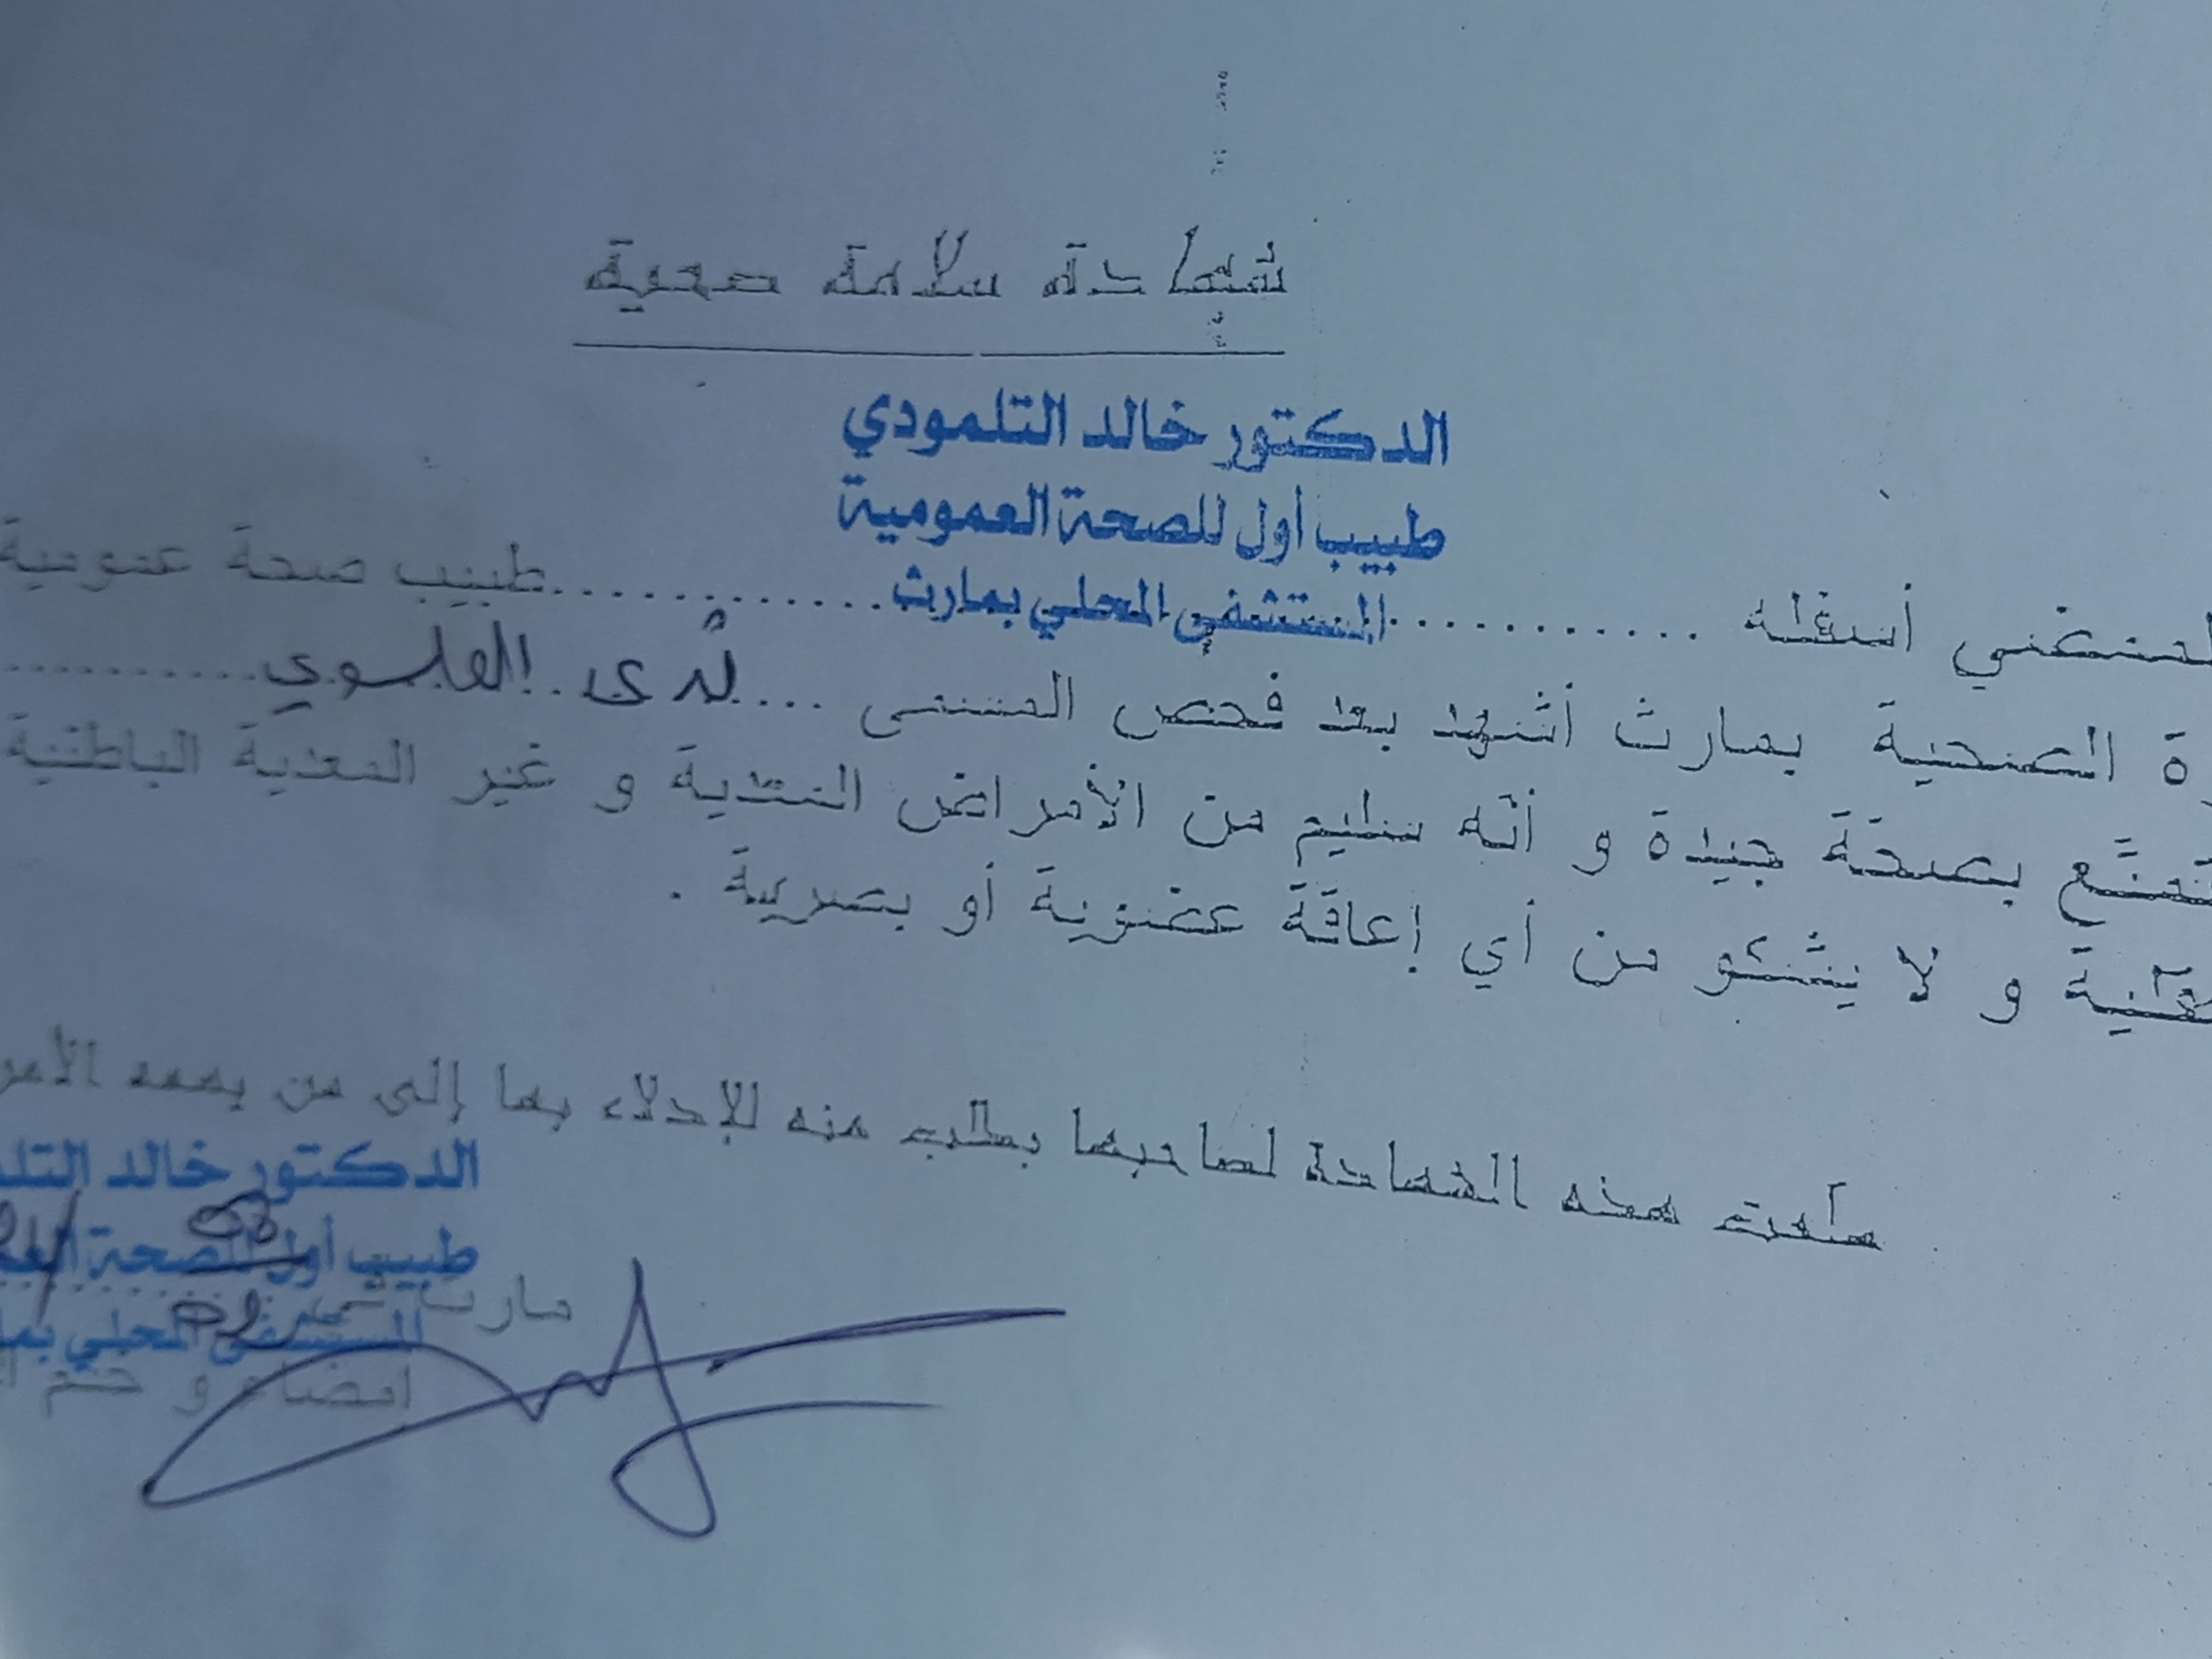 شهادة سلامة صحية
الدكتور خالد التلمودي
طبيب أول للصحة العمومية
المستشفى المحلي بمارث
الممضي أسفله ........................ طبيب صحة عمومية
الصحية بمارث أشهد بعد فحص المسمى .... ندى العلوي ..........
بصحة جيدة و أنه سليم من الأمراض المعدية و غير المعدية الباطنية
و لا يشكو من أي إعاقة عضوية أو بصرية .
سلمت هذه الشهادة لصاحبها بطلب منه للإدلاء بها إلى من يهمه الأمر
الدكتور خالد
طبيب أول للصحة
مارث في
المستشفى المحلي
إمضاء و ختم